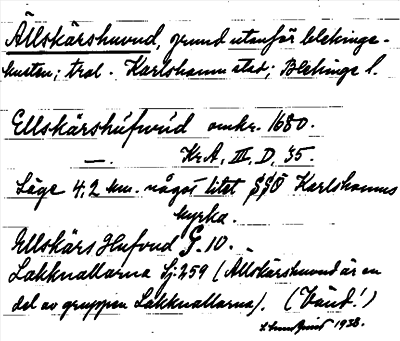 Ällskärshuvud, grund utanför blekinge-
kusten; trol. Karlshamn stad; Blekinge l.
Ellskärshúfwúd omkr. 1680.
—. Kr.A, III, D, 35.
Läge 4,2 km. något litet SSO Karlshamns
kyrka.
Ellskärs Hufvud G. 10.
Lakknallarna Sj:259 (Ällskärshuvud är en
del av gruppen Lakknallarna). (Vänd!)
1938.